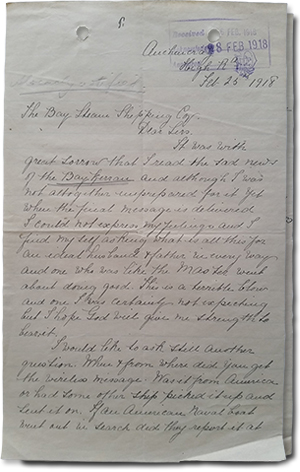 Received
28 FEB 1918
Feb 25th 1918
The Bay Steam Shipping Coy.
Dear Sirs.
It was with
great sorrow that I read the sad news
of the Bay Kerran and although I was
not altogether unprepared for it yet
when the final message is delivered
I could not express my feelings and I
find myself asking what is all this for
an ideal husband & father in every way
and one who was like the Master went
about doing good. This is a terrible blow
and one I was certainly not expecting
but I hope God will give me strength to
bear it.
I would like to ask still another
question. When & from where did you get
the wireless message. Was it from America
or had some other ship picked it up and
sent it on. If an American Naval boat
went out in search did they report it at